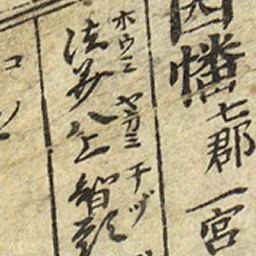 因幡七郡一宮
ホウミ ヤカミ チヅ
法美八上智頭
コソ